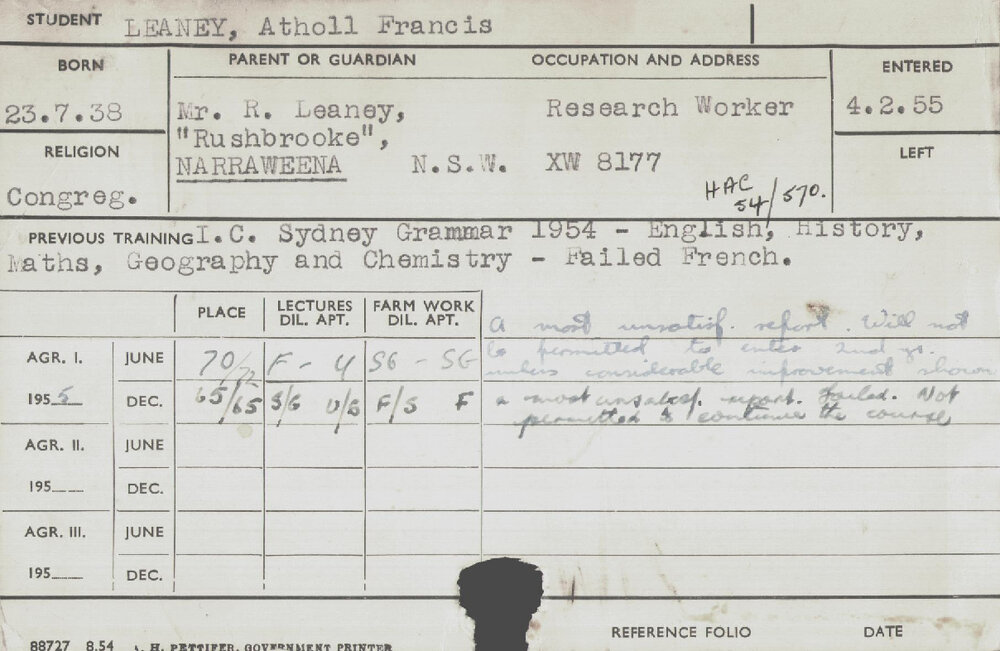 STUDENT LEANEY, Atholl Francis
BORN PARENT OR GUARDIAN OCCUPATION AND ADDRESS ENTERED
23.7.38 Mr. R. Leaney, Research Worker 4.2.55
"Rushbrooke",
RELIGION NARRAWEENA N.S.W. XW 8177 LEFT
Congreg. HAC
54/570.
PREVIOUS TRAINING I.C. Sydney Grammar 1954 - English, History,
Maths, Geography and Chemistry - Failed French.
PLACE LECTURES DIL. APT. FARM WORK DIL. APT.
A most unsatisf. report. Will not
AGR. I. JUNE 70/72 F - U SG - SG be permitted to enter 2nd yr.
unless considerable improvement shown
1955 DEC. 65/65 S/G U/S F/S F a most unsatisf. report. Failed. Not
permitted to continue the course
AGR. II. JUNE
195__ DEC.
AGR. III. JUNE
195__ DEC.
REFERENCE FOLIO DATE
88727 8.54 H. PETTIFER, GOVERNMENT PRINTER